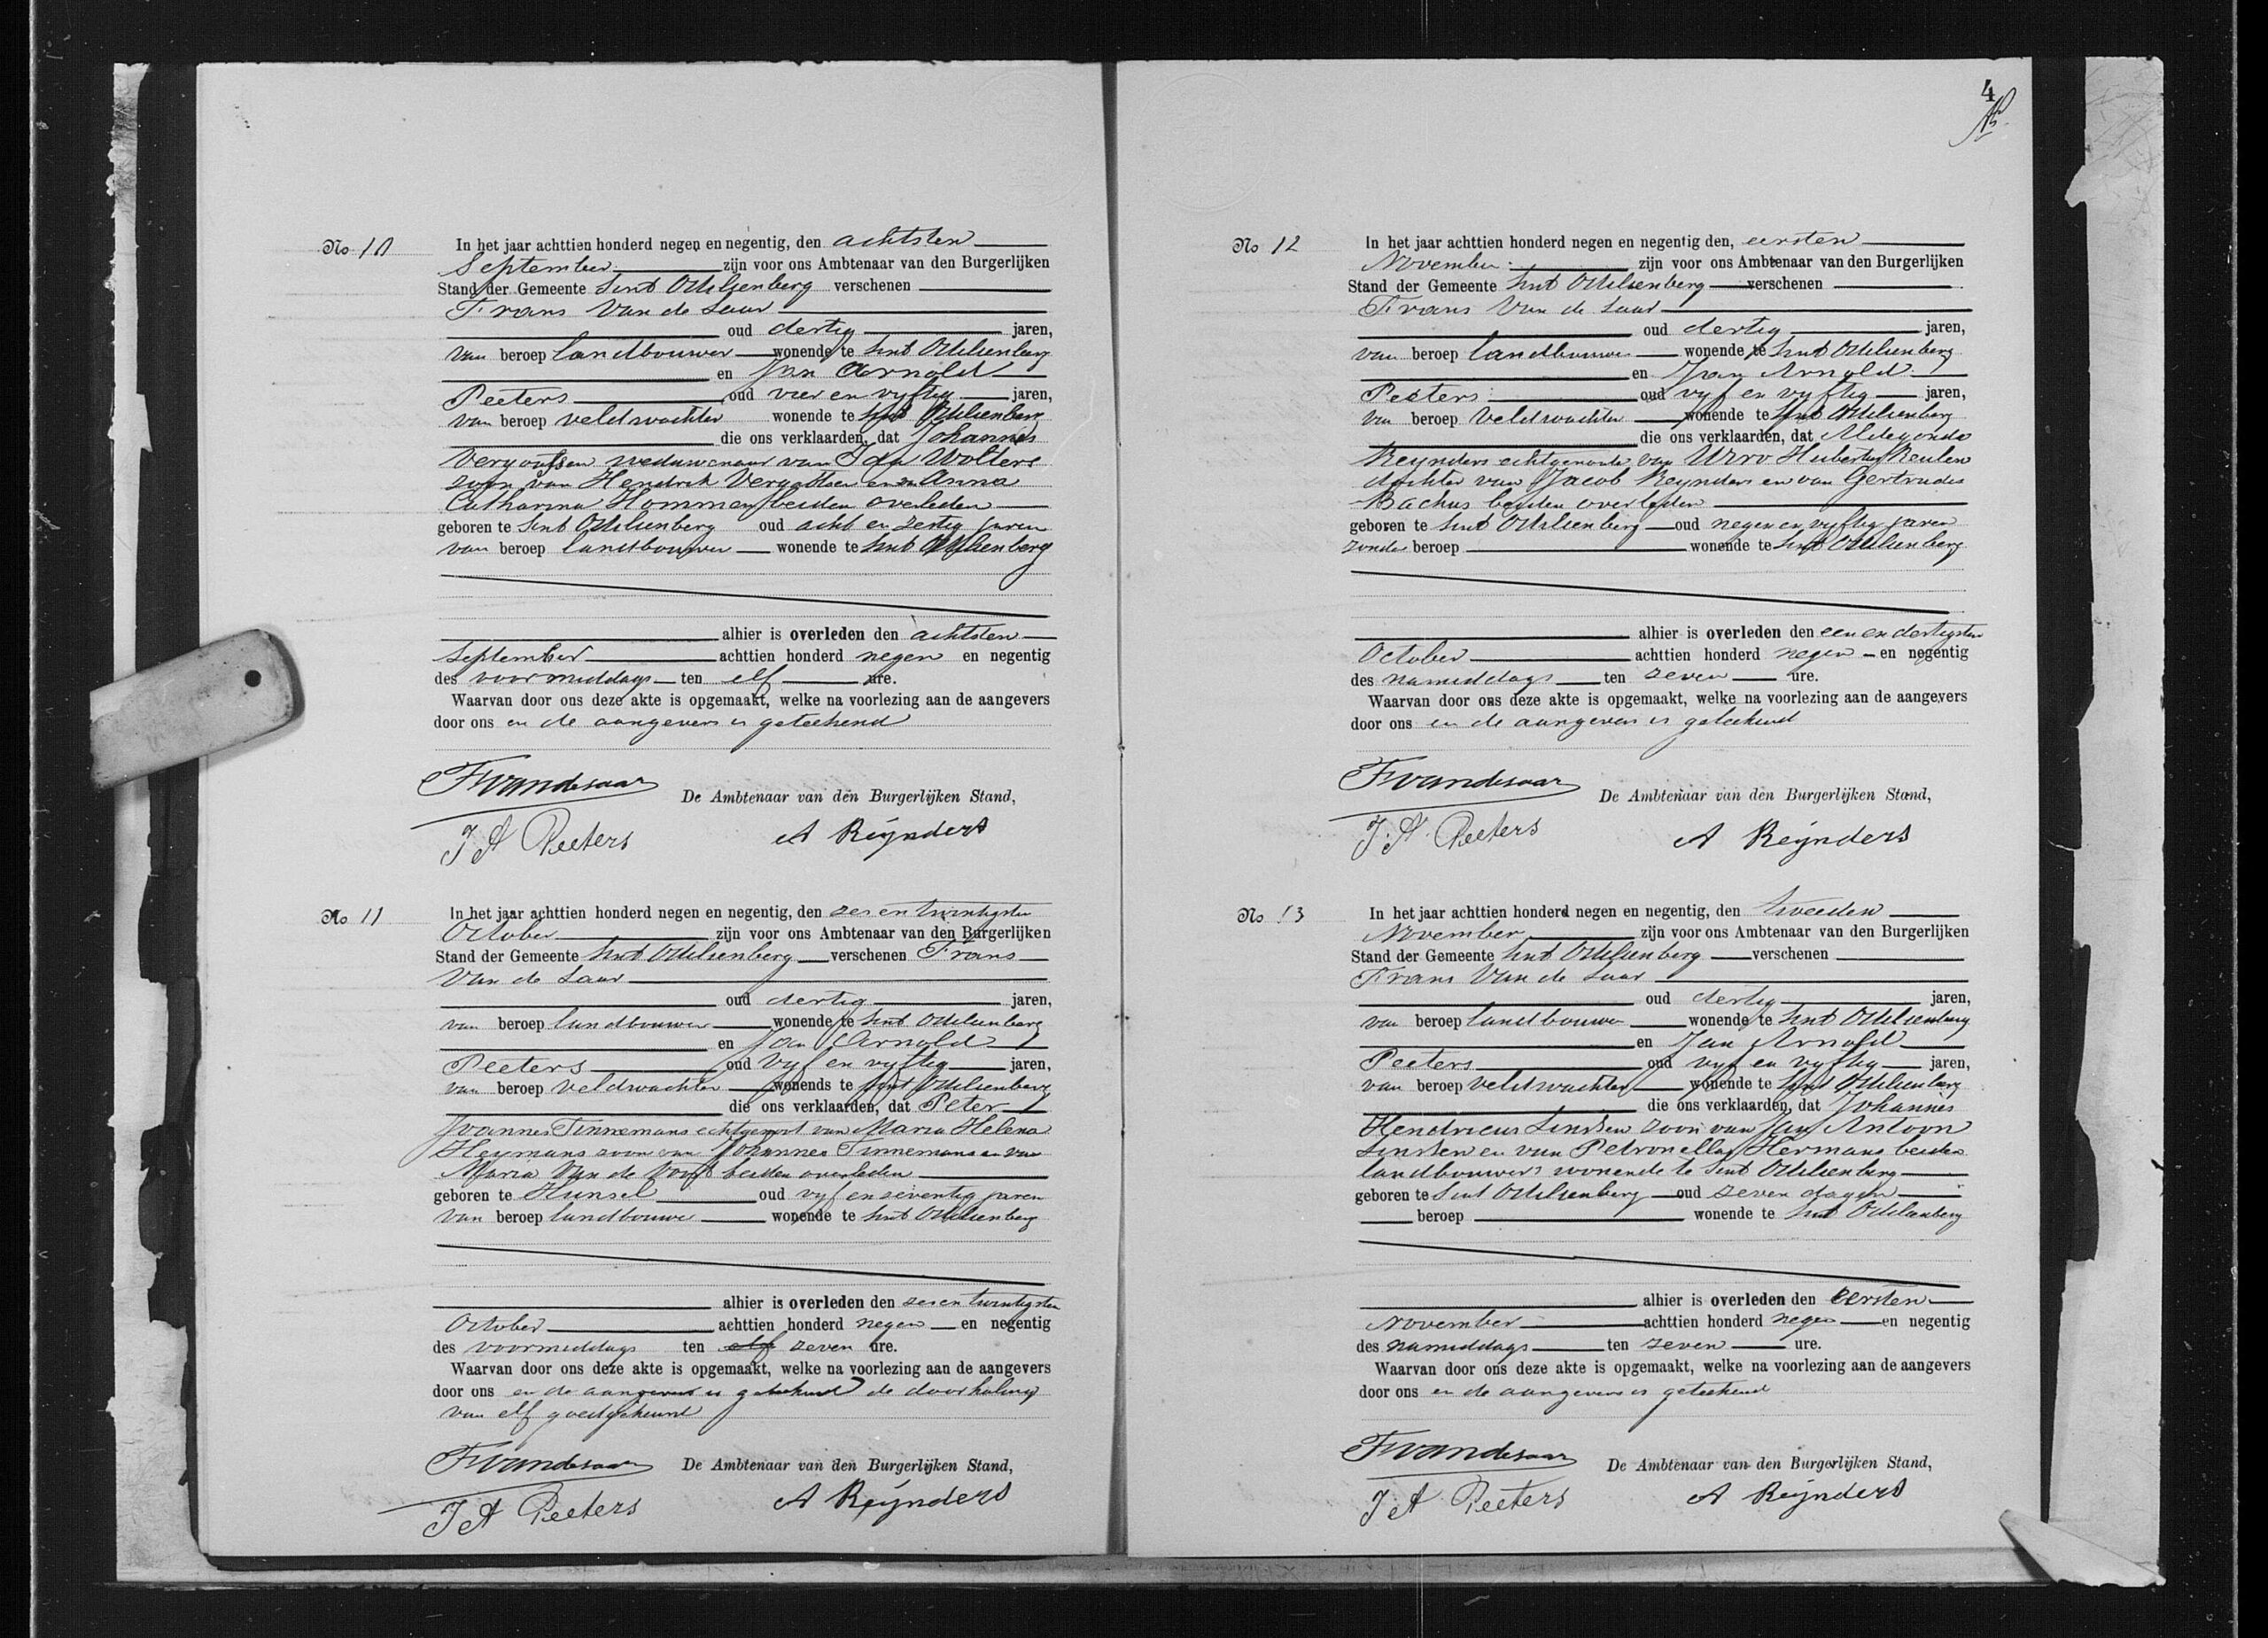 4
No 10
In het jaar achttien honderd negen en negentig, den achtsten
September zijn voor ons Ambtenaar van den Burgerlijken
Stand der Gemeente Sint Odiliënberg verschenen
Frans Van de Laar
oud dertig jaren,
van beroep landbouwer wonende te Sint Odiliënberg
en Jan Arnold
Peeters oud vier en vyftig jaren,
van beroep veldwachter wonende te Sint Odiliënberg
die ons verklaarden, dat Johannes
Vergoutsen weduwenaar van Ida Wolters
zoon van Hendrik Vergoutsen en van Anna
Catharina Hommen beiden overleden
geboren te Sint Odiliënberg oud acht en zestig jaren
van beroep landbouwer wonende te Sint Odiliënberg
alhier is overleden den achtsten
September achttien honderd negen en negentig
des voormiddags ten elf ure.
Waarvan door ons deze akte is opgemaakt, welke na voorlezing aan de aangevers
door ons en de aangevers is geteekend
F vandesaar
De Ambtenaar van den Burgerlijken Stand,
J A Peeters
A Reijnders
No 11
In het jaar achttien honderd negen en negentig, den zes en twintigsten
October zijn voor ons Ambtenaar van den Burgerlijken
Stand der Gemeente Sint Odiliënberg verschenen Frans
Van de Laar
oud dertig jaren,
van beroep landbouwer wonende te Sint Odiliënberg
en Jan Arnold
Peeters oud vyf en vyftig jaren,
van beroep veldwachter wonends te Sint Odiliënberg
die ons verklaarden, dat Peter
Joannes Tinnemans echtgenoot van Maria Helena
Heymans zoon van Johannes Tinnemans en van
Maria Van de Voort beiden overleden
geboren te Hunsel oud vyf en seventig jaren
van beroep landbouwer wonende te Sint Odiliënberg
alhier is overleden den zes en twintigsten
October achttien honderd negen en negentig
des voormiddags ten elf zeven ure.
Waarvan door ons deze akte is opgemaakt, welke na voorlezing aan de aangevers
door ons en de aangevers is geteekend de doorhaling
van elf goedgekeurd
F vandesaar
De Ambtenaar van den Burgerlijken Stand,
J A Peeters
A Reijnders
No 12
In het jaar achttien honderd negen en negentig den, eersten
November zijn voor ons Ambtenaar van den Burgerlijken
Stand der Gemeente Sint Odiliënberg verschenen
Frans Van de Laar
oud dertig jaren,
van beroep landbouwer wonende te Sint Odiliënberg
en Jan Arnold
Peeters oud vyf en vyftig jaren,
van beroep veldwachter wonende te Sint Odiliënberg
die ons verklaarden, dat Aldegonda
Reynders echtgenoote van Hubertus Keulen
dochter van Jacob Reynders en van Gertrudis
Backus beiden overleden
geboren te Sint Odiliënberg oud negen en vyftig jaren
zonder beroep wonende te Sint Odiliënberg
alhier is overleden den een en dertigsten
October achttien honderd negen en negentig
des namiddags ten zeven ure.
Waarvan door ons deze akte is opgemaakt, welke na voorlezing aan de aangevers
door ons en de aangevers is geteekend
F vandesaar
De Ambtenaar van den Burgerlijken Stand,
J A Peeters
A Reijnders
No 13
In het jaar achttien honderd negen en negentig, den tweeden
November zijn voor ons Ambtenaar van den Burgerlijken
Stand der Gemeente Sint Odiliënberg verschenen
Frans Van de Laar
oud dertig jaren,
van beroep landbouwer wonende te Sint Odiliënberg
en Jan Arnold
Peeters oud vyf en vyftig jaren,
van beroep veldwachter wonende te Sint Odiliënberg
die ons verklaarden, dat Johannes
Hendricus Linssen zoon van Jan Antoon
Linssen en van Petronella Hermans beiden
landbouwers wonende te Sint Odiliënberg
geboren te Sint Odiliënberg oud zeven dagen
beroep wonende te Sint Odiliënberg
alhier is overleden den eersten
November achttien honderd negen en negentig
des namiddags ten zeven ure.
Waarvan door ons deze akte is opgemaakt, welke na voorlezing aan de aangevers
door ons en de aangevers is geteekend
F vandesaar
De Ambtenaar van den Burgerlijken Stand,
J A Peeters
A Reijnders